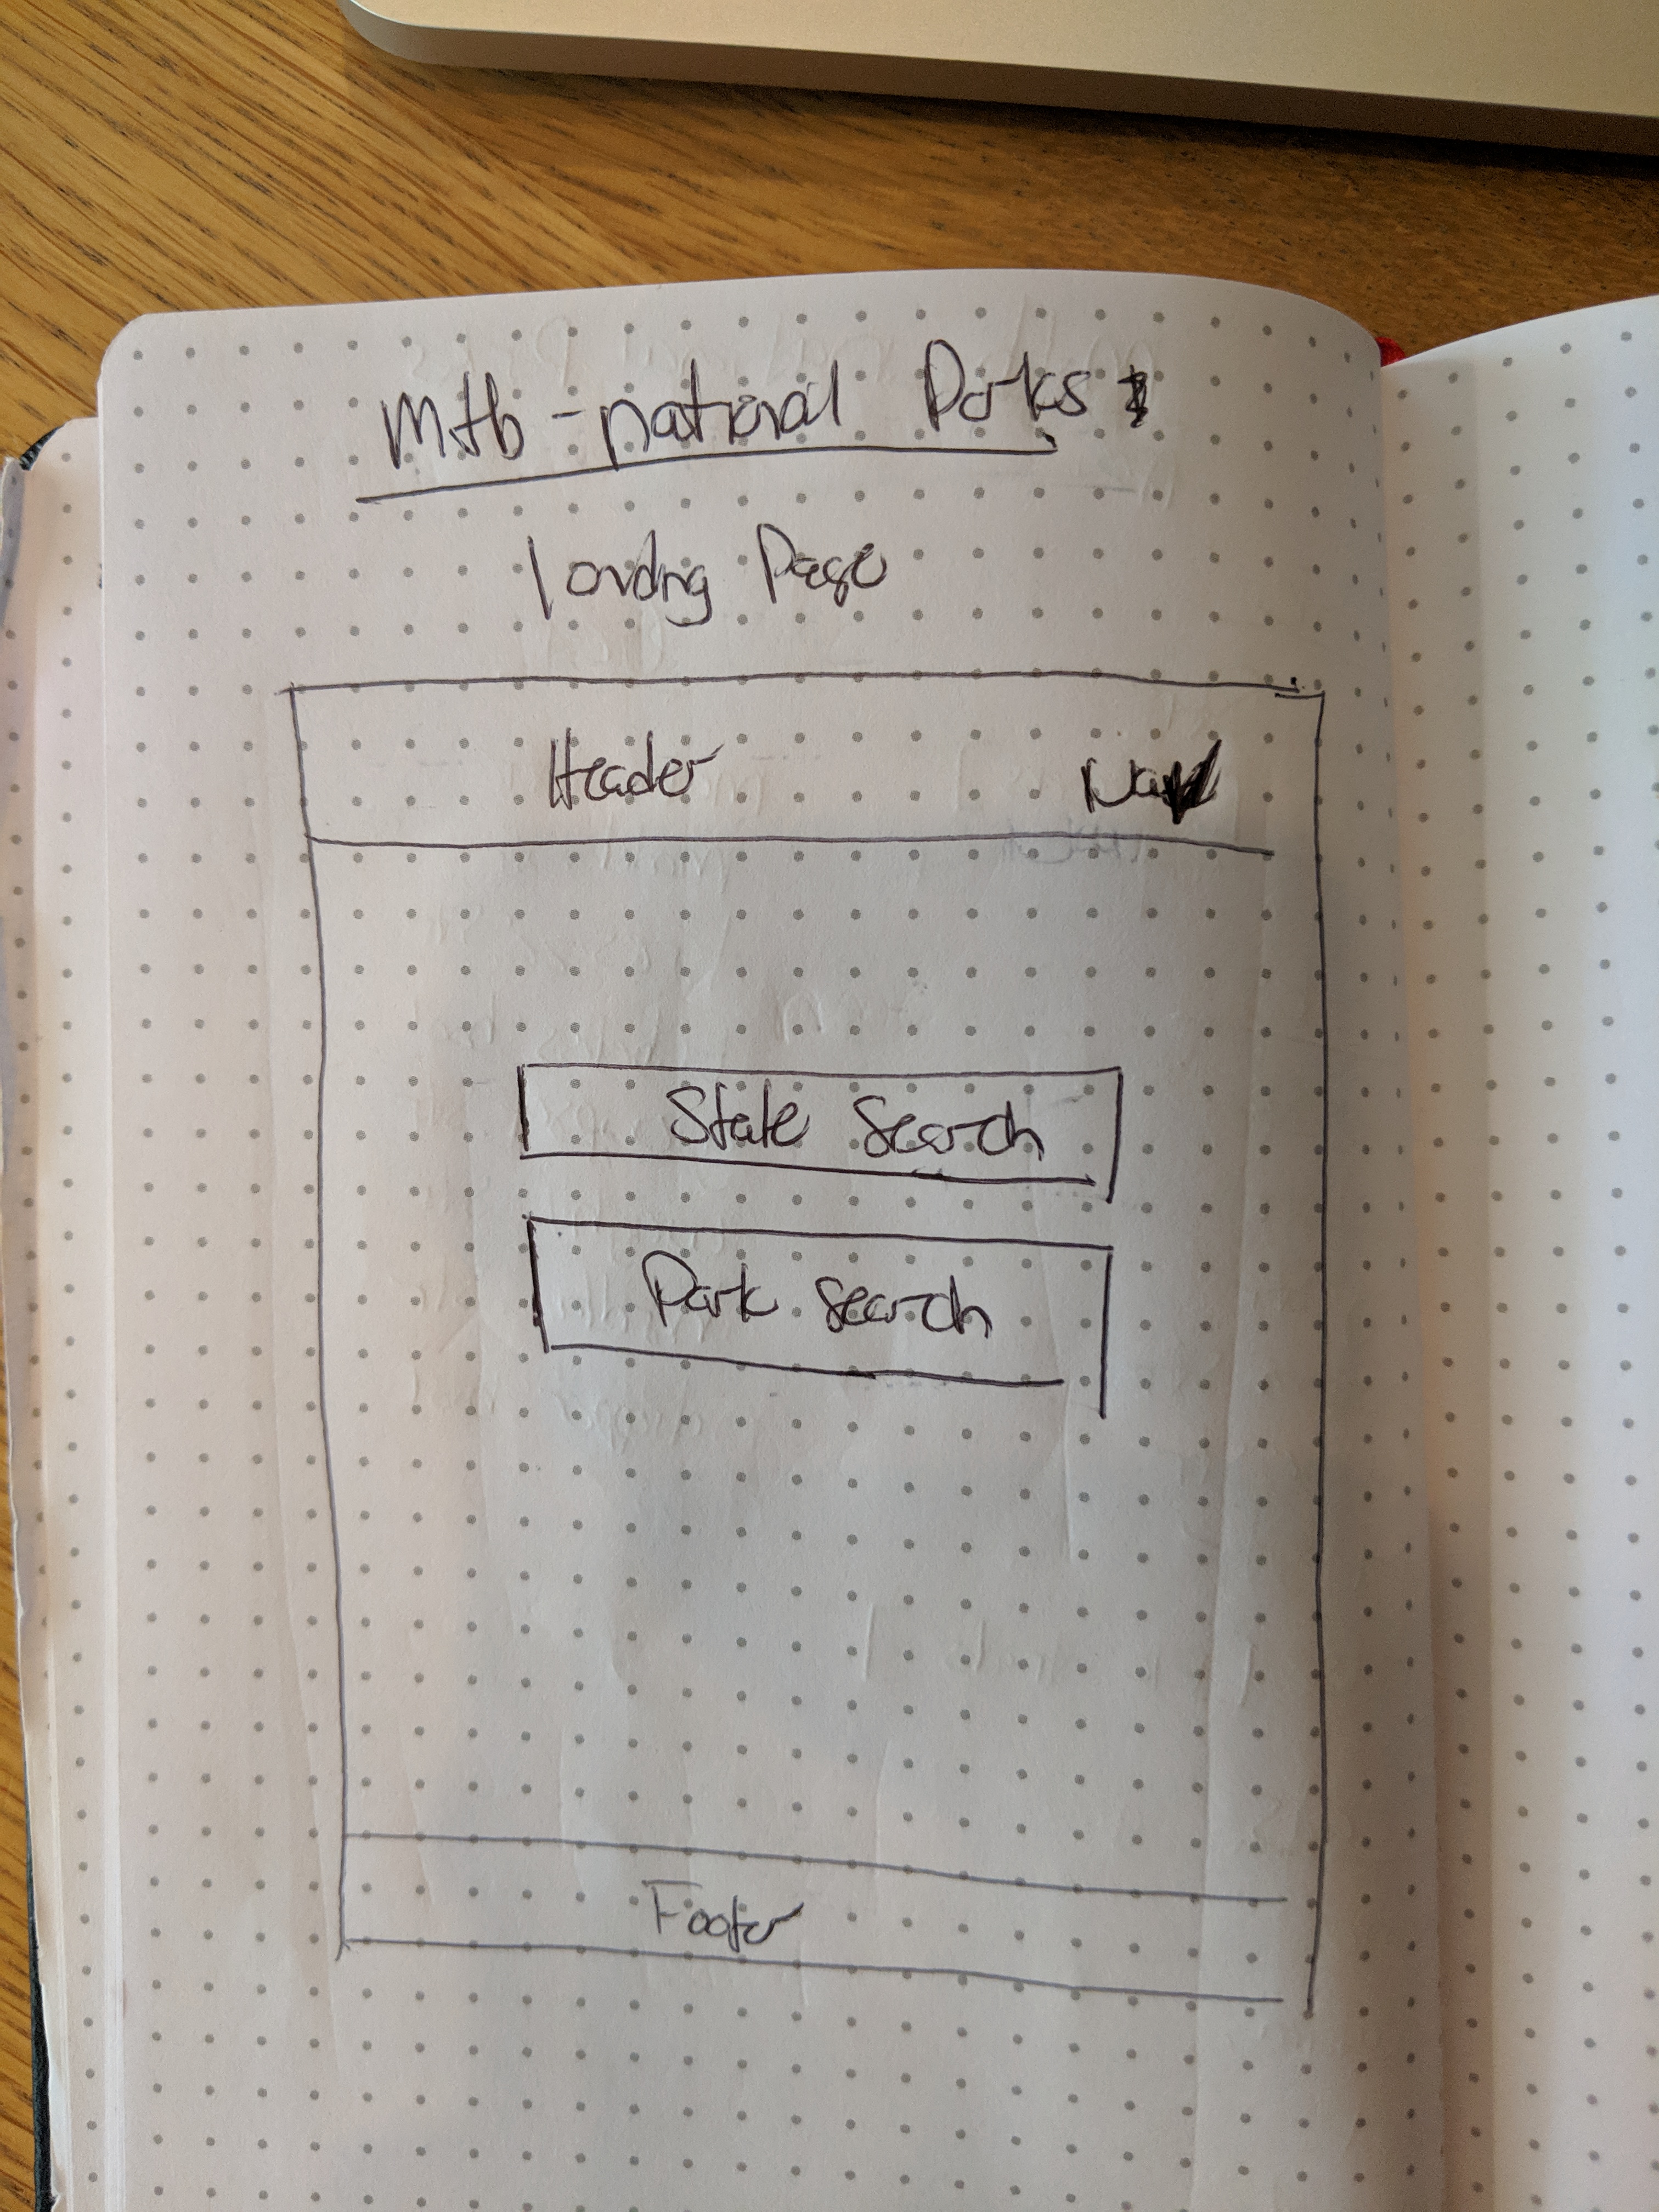 Mtb - national Parks
landing Page
Header Nav
State Search
Park Search
Footer